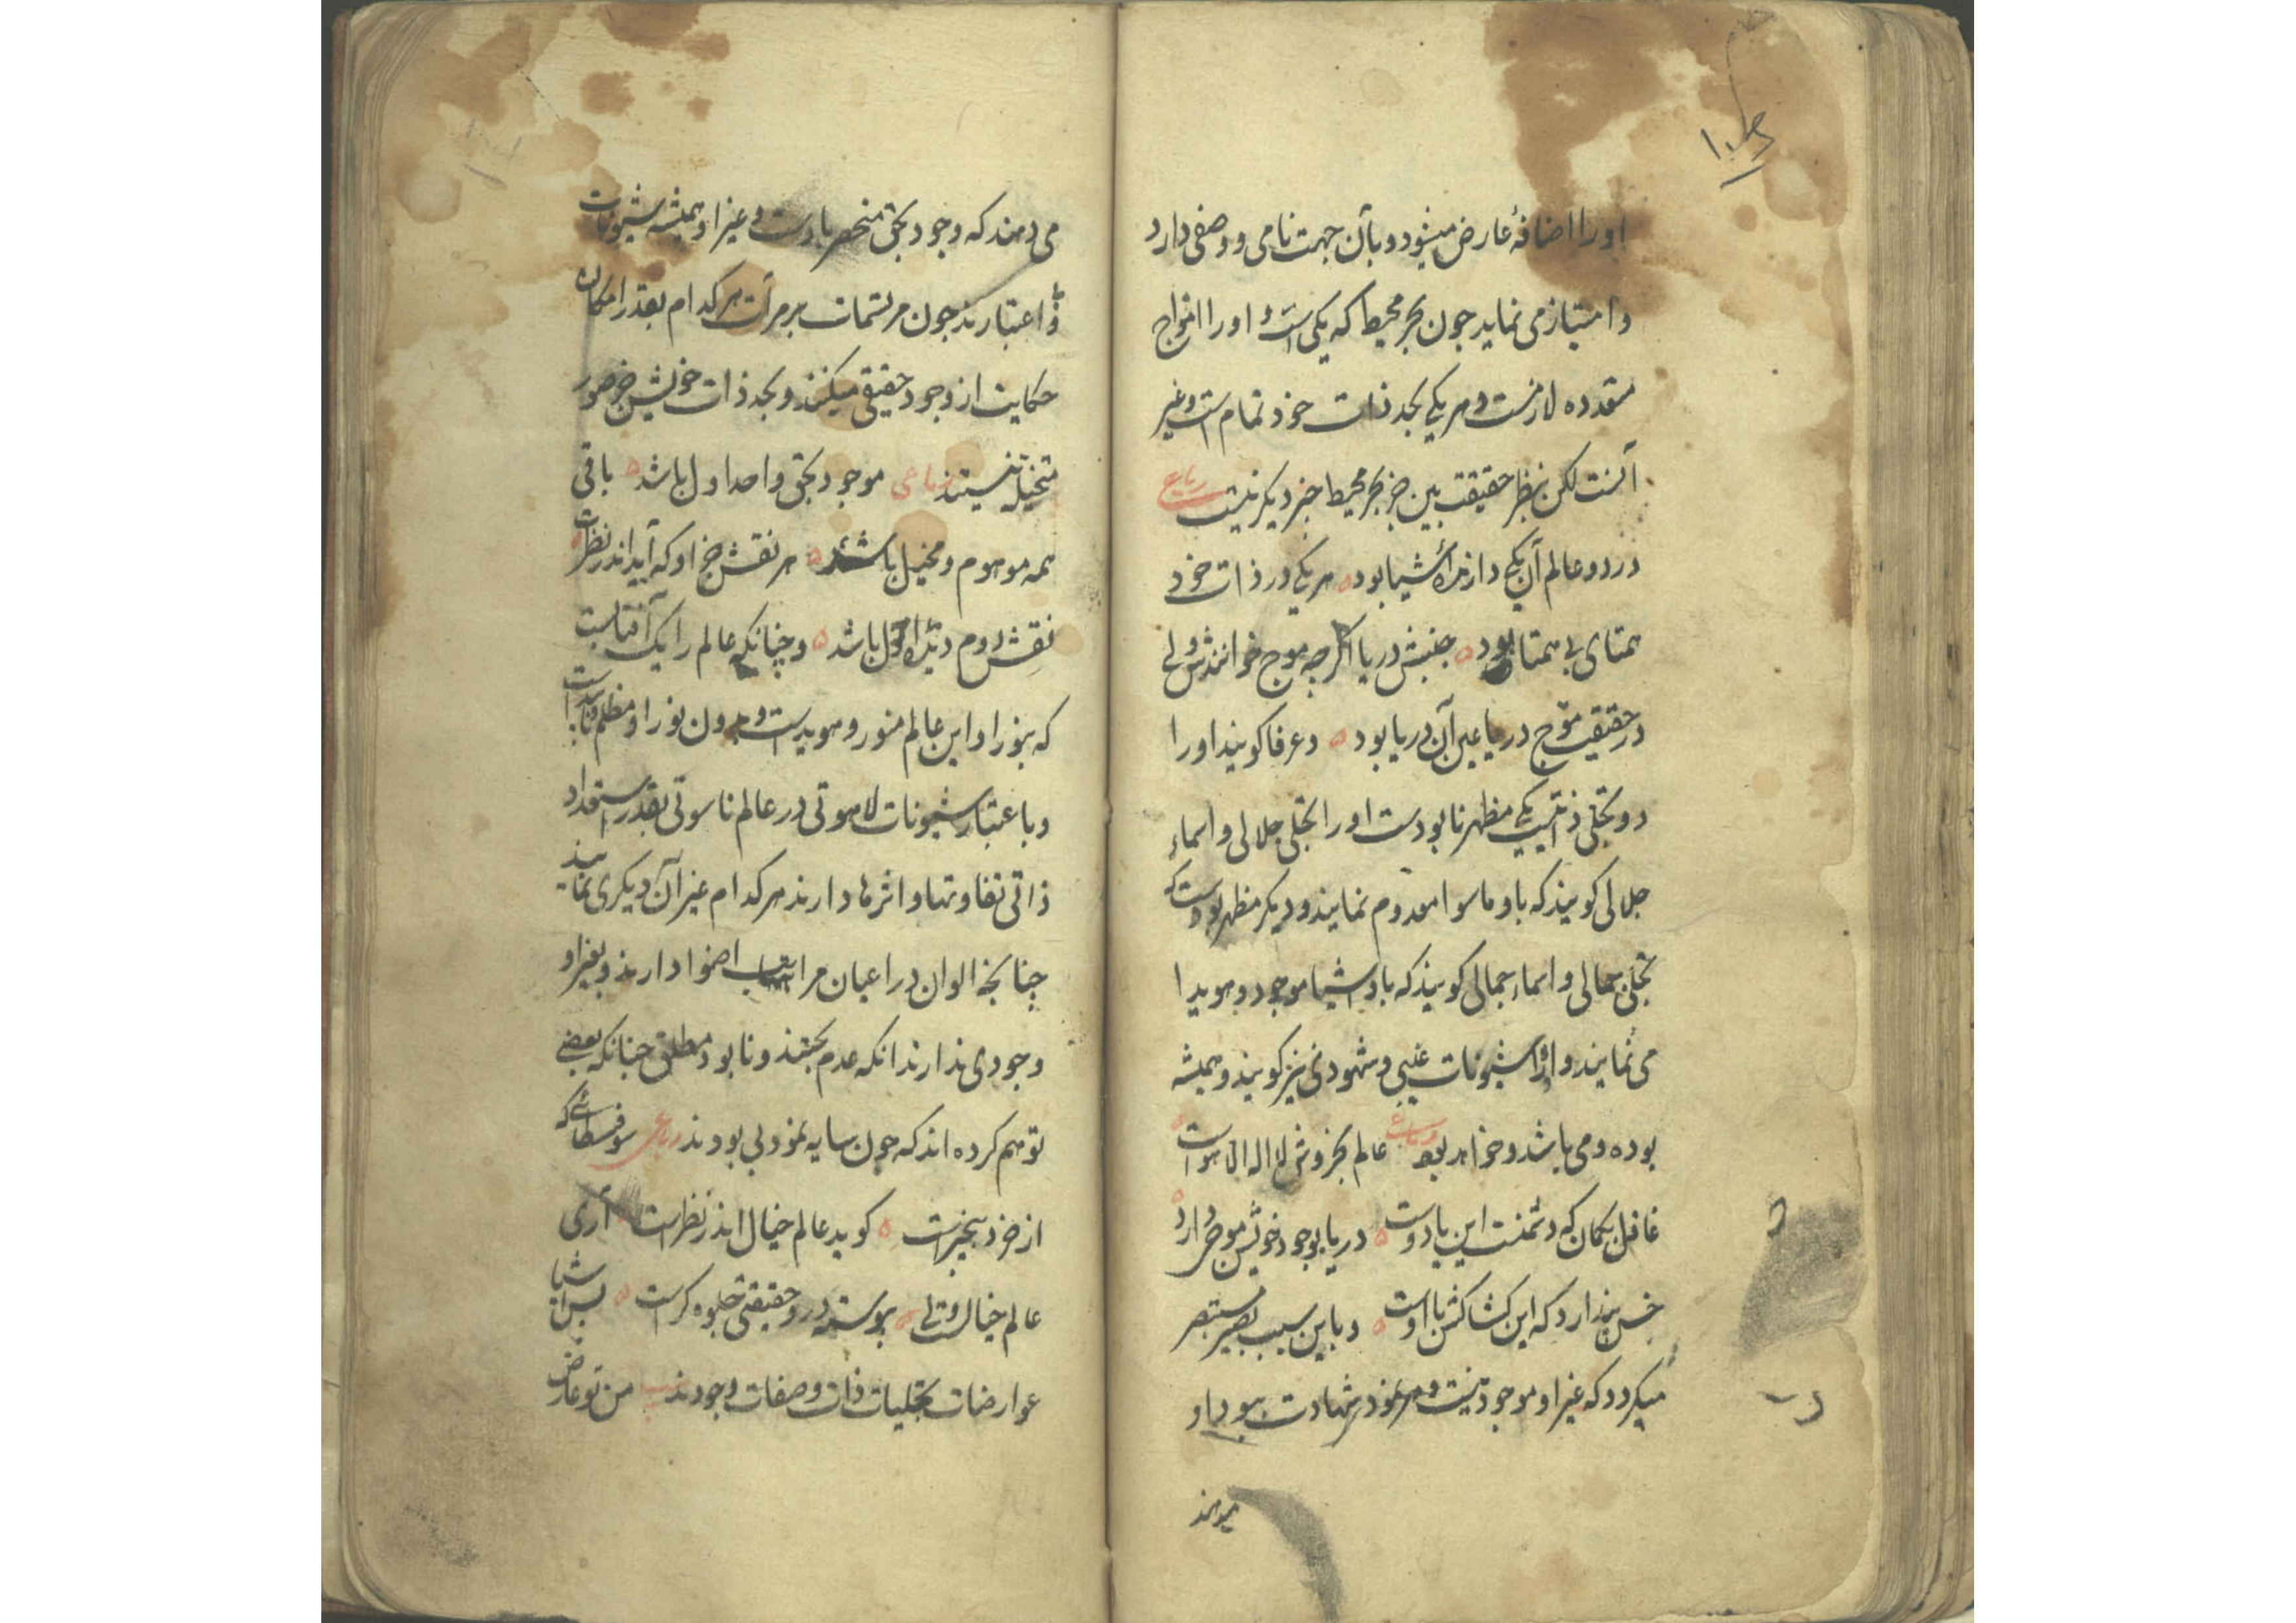 اورا اضافهٔ عارض میشود و بآن جهت نامی و وصفی دارد
و امتیاز می نماید جون بحر محیط که یکی است و اورا امواج
متعدده لازمست و هر یکی بحد ذات خود تمام است و غیر
آنست لکن بنظر حقیقت بین جز بحر محیط جیز دیکر نیست رباعی
در دو عالم آن یکی دارندهٔ اشیا بود هر یکی در ذات خود
همتای بی همتا بود جنبش دریا اکرچه موج خوانندش ولی
در حقیقت موج دریا عین آن دریا بود و عرفا کویند اورا
دو تجلی ذاتیست یکی مظهر نابودست اورا تجلی جلالی و اسماء
جلالی کویند که باو ماسوا معدوم نمایند و دیکر مظهر بودست که
تجلی جمالی و اسماء جمالی کویند که باو اشیا موجود و هویدا
می نمایند و او را شیونات غیبی و شهودی نیز کویند و همیشه
بوده و می باشد و خواهد بود رباعی عالم بخروش لا اله الا هو است
غافل بکمان که دشمنست این یا دوست دریا بوجود خویش موجی دارد
خس پندارد که این کشاکش با اوست و باین سبب بصیر مستبصر
میکردد که غیر او موجود نیست و هر نمود شهادت ببود او
میدهند
می دهند که وجود بحق منحصر باوست و غیر او همیشه شیونات
و اعتبارند جون مرتسمات بر مرآت هر کدام بقدر امکان
حکایت از وجود حقیقی میکنند و بحد ذات خویش جز صور
متخیله نیستند رباعی موجود بحق واحد اول باشد باقی
همه موهوم و مخیل باشد هر نقش جز او که آید اندر نظرت
نقش دوم دیدهٔ احول باشد و چنانکه عالم را یک آفتابست
که بنور او این عالم منور و هویدست و بدون نور او مظلم و نابیداست
و باعتبار شیونات لاهوتی در عالم ناسوتی بقدر استعداد
ذاتی تفاوتها و اثرها دارند هر کدام غیر آن دیکری نمایند
چنانچه الوان در اعیان مراتب اضوا دارند و بغیر او
وجودی ندارند انکه عدم بحتند و نابود مطلق جنانکه بعضی
توهم کرده اند که چون سایه نمود بی بودند رباعی سوفسطائی که
از خرد بیخبرست کوید عالم خیال اندر نظرست آری
عالم خیالست ولی پیوسته در و حقیقتی جلوه کرست پس اشیا
عوارضات تجلیات ذات و صفات وجودند من تو عارض